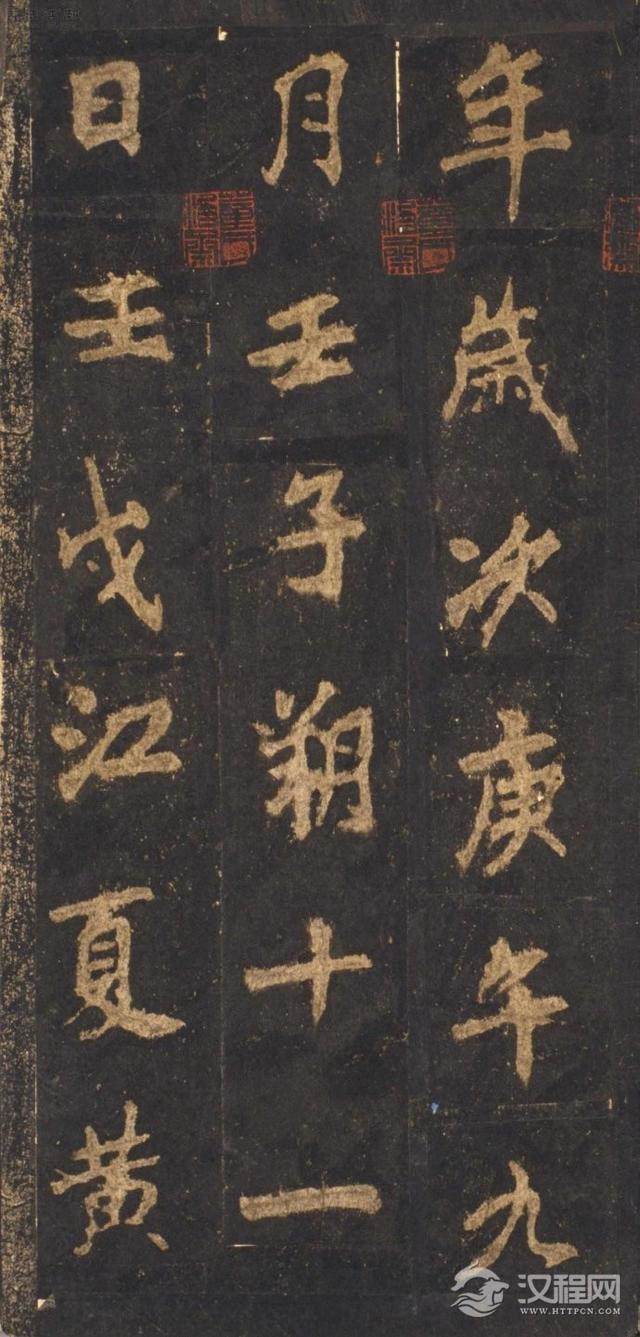 年歲次庚午九
月壬子朔十一
日壬戌江夏黄
汉程网
WWW.HTTPCN.COM